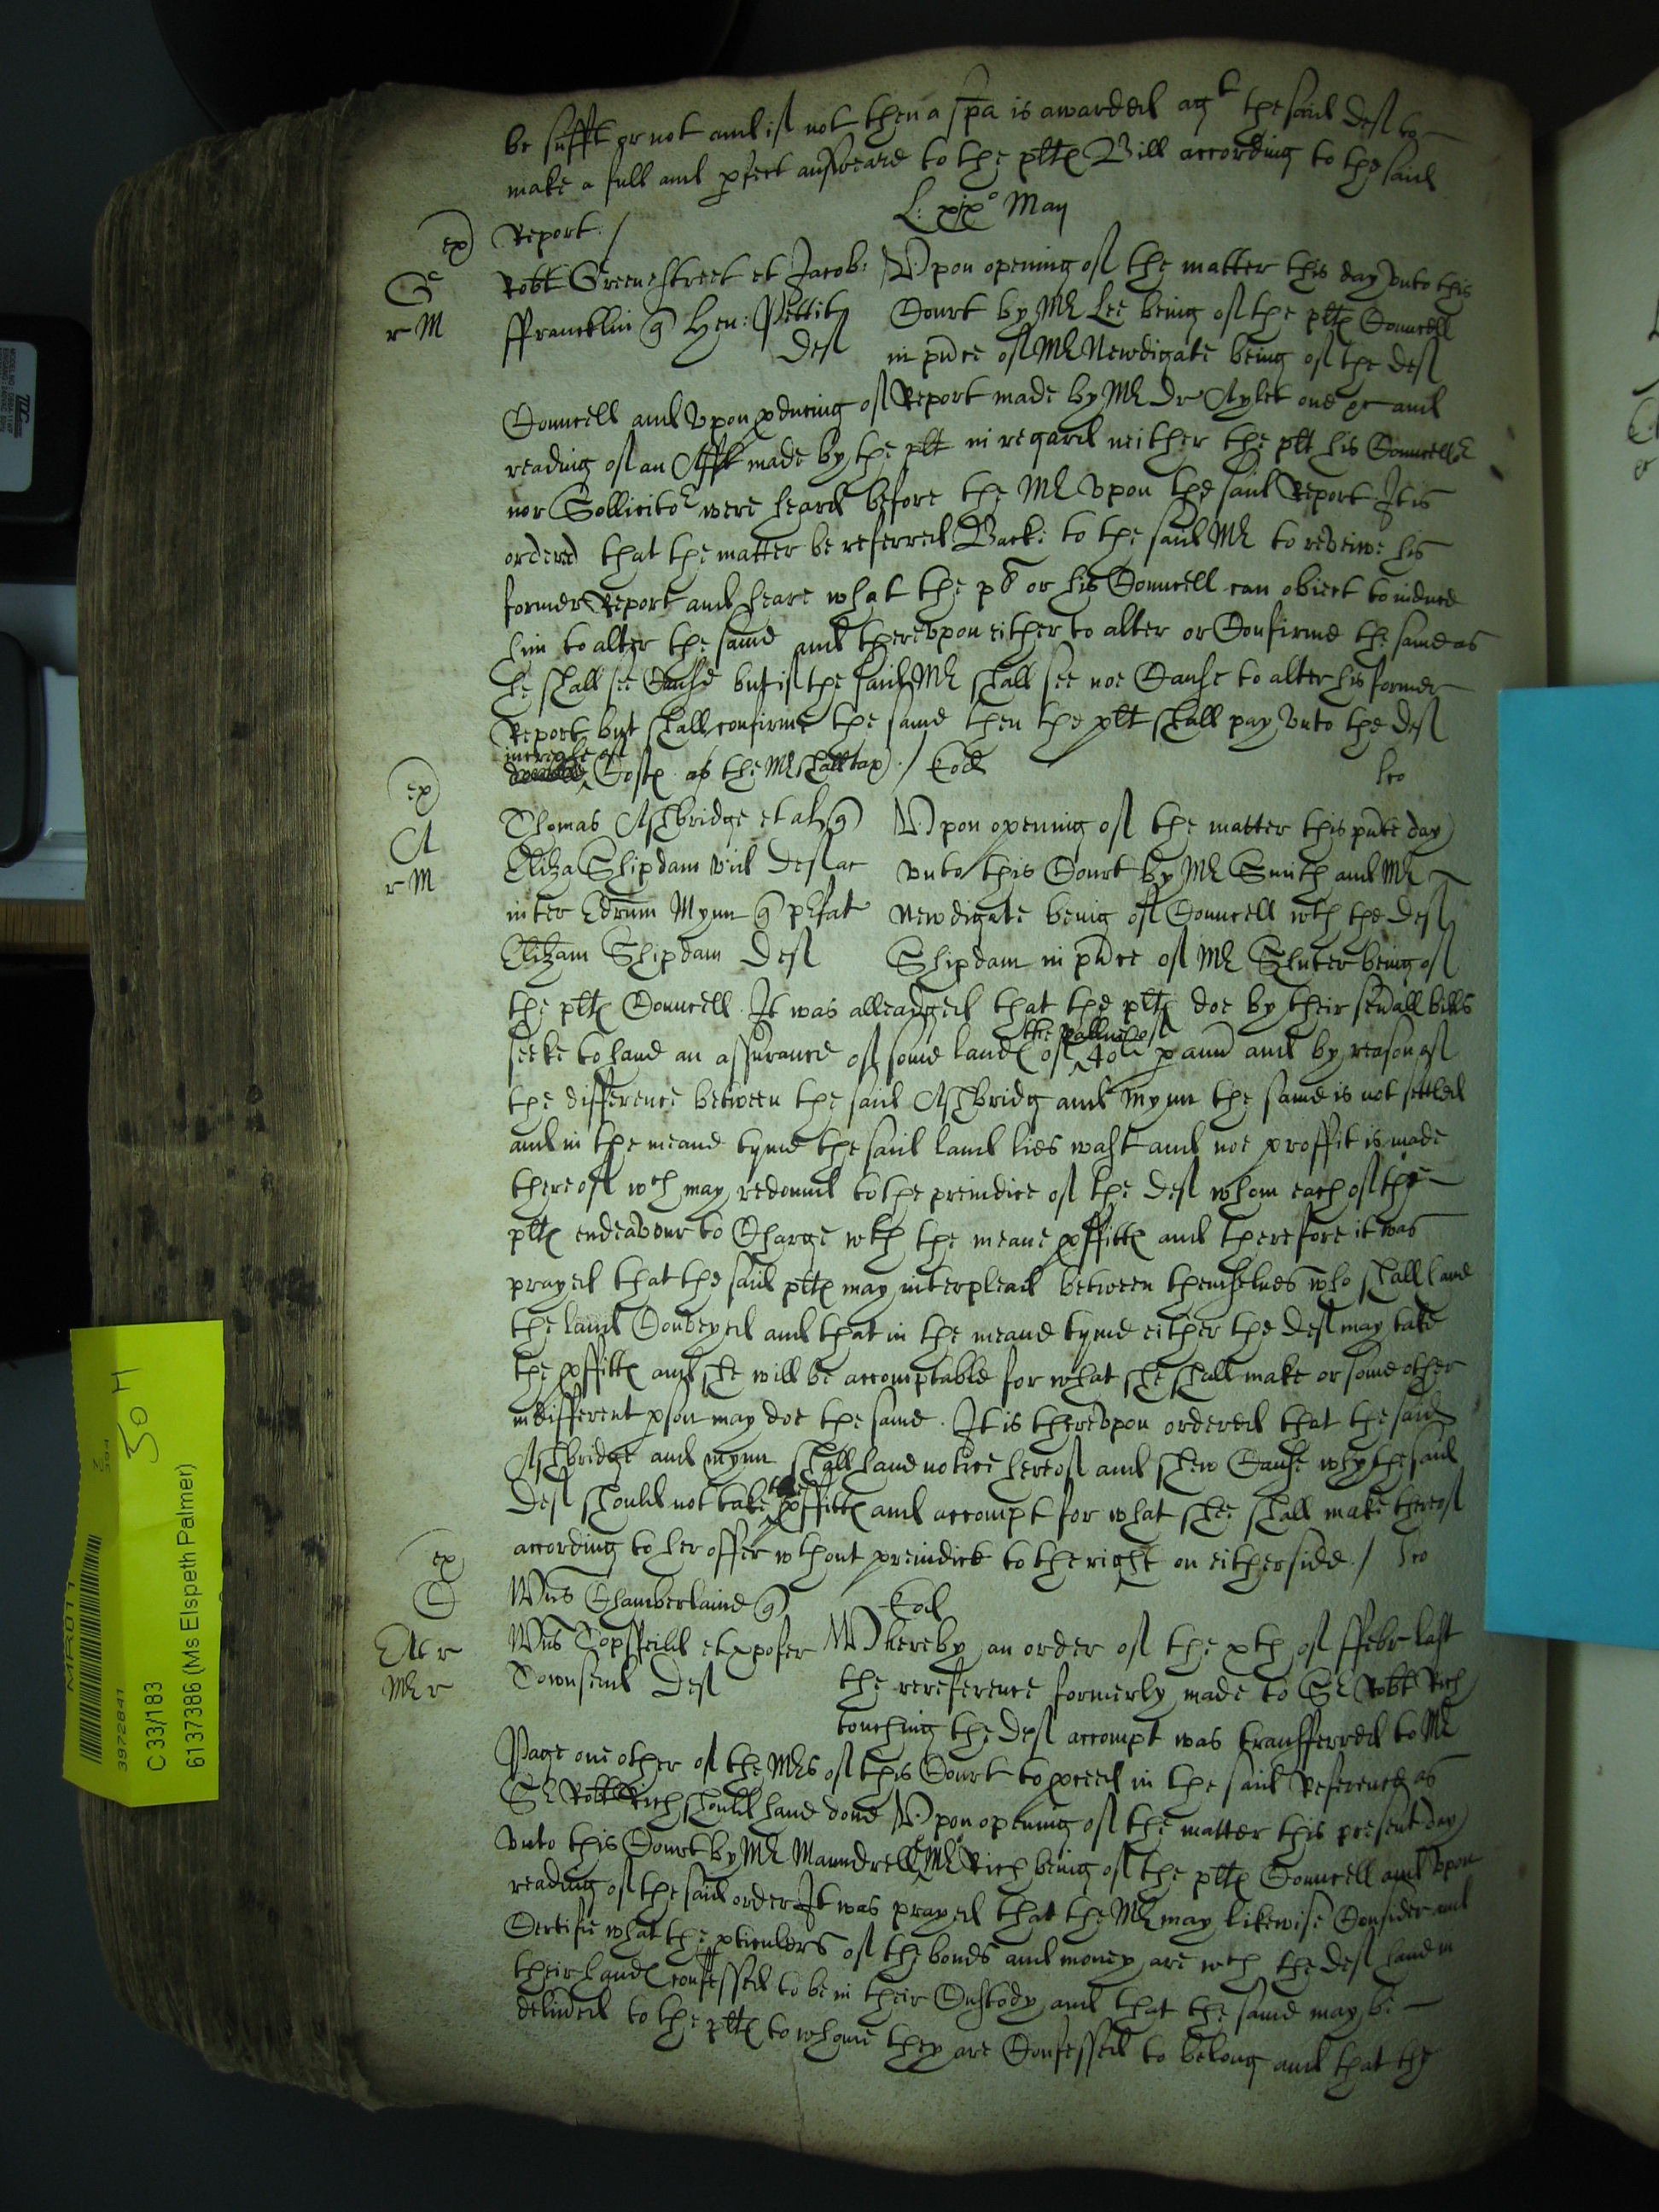 be sufft or not and if not then a spa is awarded agt the said Deft to
make a full and pfect answeare to the pltfs Bill according to the said
Report. /
L: xix° May
ex
Gr
r M
Robt Greenestreet et Jacob:
ffrancklin q Hen: Pettit
Deft
Vpon opening of the matter this day vnto this
Court by Mr Lee being of the pltfs Councell
in pñce of Mr Newdigate being of the Deft
Councell and vpon pducing of Report made by Mr Dr Aylet one &c and
reading of an Afft made by the plt in regard neither the plt his Councellr
nor Sollicitor were heard before the Mr vpon the said Report It is
ordered that the matter be referred Back: to the said Mr to reveiwe his
former Report and heare what the pl or his Councell can obiect to induce
him to alter the same and therevpon either to alter or Confirme the same as
he shall see Cause but if the said Mr shall see noe Cause to alter his former
Report but shall confirme the same then the plt shall pay vnto the Deft
increase of
Costs as the Mr shall tax. /
ex
A
r M
Thomas Ashbridge et al q
Eliza Shipdam vid Deft ac
inter Edrum Mynn q prfat
Elizam Shipdam Deft
Vpon opening of the matter this pñte day
vnto this Court by Mr Smith and Mr
Newdigate being of Councell wth the Deft
Shipdam in pñce of Mr Shuter being of
the pltfs Councell It was alleadged that the pltfs doe by their seuall bills
seeke to haue an assurance of some lands of the vallue of 40li p ann and by reason of
the difference between the said Ashbridg and Mynn the same is not settled
and in the meane tyme the said land lies wast and noe proffit is made
thereof wch may redound to the preiudice of the Deft whom each of the
pltfs endeavour to Charge wth the meane pffitts and therefore it was
prayed that the said pltfs may interplead between themselues who shall haue
the land Conveyed and that in the meane tyme either the Deft may take
the pffitts and she will be accomptable for what she shall make or some other
indifferent pson may doe the same. It is therevpon ordered that the said
Ashbridge and Mynn shall haue notice hereof and shew Cause why the said
Deft should not take the pffitts and accompt for what she shall make thereof
according to her offer wthout preiudice to the right on either side. /
ex
C
Wms Chamberlaine q
Wms Topsfeild et
Townsend Deft
Mr r
Whereby an order of the xth of ffebr last
the rereference formerly made to Sr Robt Rich
touching the Defts accompt was transferred to Mr
Page one other of the Mrs of this Court to pceed in the said Reference as
Sr Robt Rich should haue done Vpon opening of the matter this present day
vnto this Court by Mr Maundrell & Mr Rich being of the pltfs Councell and vpon
reading of the said order It was prayed that the Mr may likewise Consider and
Certifie what the pticulers of the bonds and money are wch the Deft haue in
their hands confessed to be in their Custody and that the same may be
deliued to the pltfs to whome they are Confessed to belong and that the
50 H
3972841
C 33/183
6137386 (Ms Elspeth Palmer)